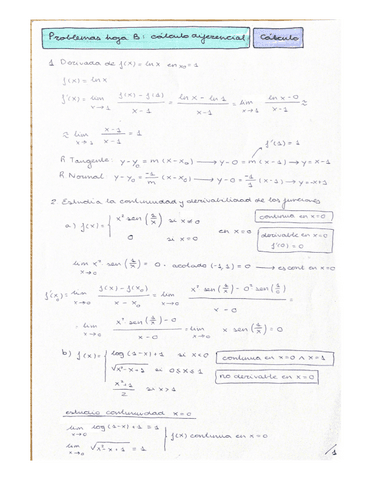 Problemas hoja B: cálculo diferencial Cálculo
1. Derivada de f(x) = ln x en x₀ = 1
f(x) = ln x
f'(x) = lim x→1 (f(x) - f(1))/(x - 1) = (ln x - ln 1)/(x - 1) = lim x→1 (ln x - 0)/(x - 1) ≈
≈ lim x→1 (x - 1)/(x - 1) = 1
f'(1) = 1
R Tangente: y - y₀ = m (x - x₀) → y - 0 = m (x - 1) → y = x - 1
R Normal y - y₀ = -1/m (x - x₀) → y - 0 = -1/1 (x - 1) → y = -x + 1
2. Estudia la continuidad y derivabilidad de las funciones
a) f(x) = { x² sen (1/x) si x ≠ 0
0 si x = 0
en x = 0
continua en x = 0
derivable en x = 0
f'(0) = 0
lim x→0 x² sen (1/x) = 0 · acotado (-1, 1) = 0 → es cont en x = 0
f'(x) = lim x→0 (f(x) - f(x₀))/(x - x₀) = lim x→0 (x² sen (1/x) - 0² sen (1/0))/(x - 0) =
= lim x→0 (x² sen (1/x) - 0)/(x - 0) = lim x→0 x sen (1/x) = 0
b) f(x) = { log (1-x) + 1 si x < 0
√x² - x + 1 si 0 ≤ x ≤ 1
(x² + 1)/2 si x > 1
continua en x = 0 ∧ x = 1
no derivable en x = 0
estudio continuidad x = 0
lim x→0 log (1-x) + 1 = 1
lim x→0 √x² - x + 1 = 1
f(x) continua en x = 0
1